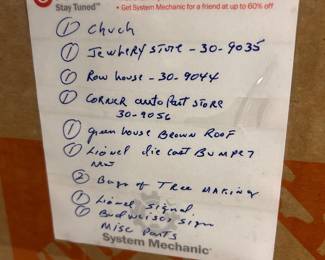 Stay Tuned™
• Get System Mechanic for a friend at up to 60% off
① Chuch
① Jewlery Store - 30-9035
① Row house - 30-9044
① Corner Auto Part Store
30-9056
① Green House Brown Roof
① Lionel die cast Bumper
② Bags of Tree making
① Lionel Signal
① Budweiser Sign
Misc Parts
System Mechanic